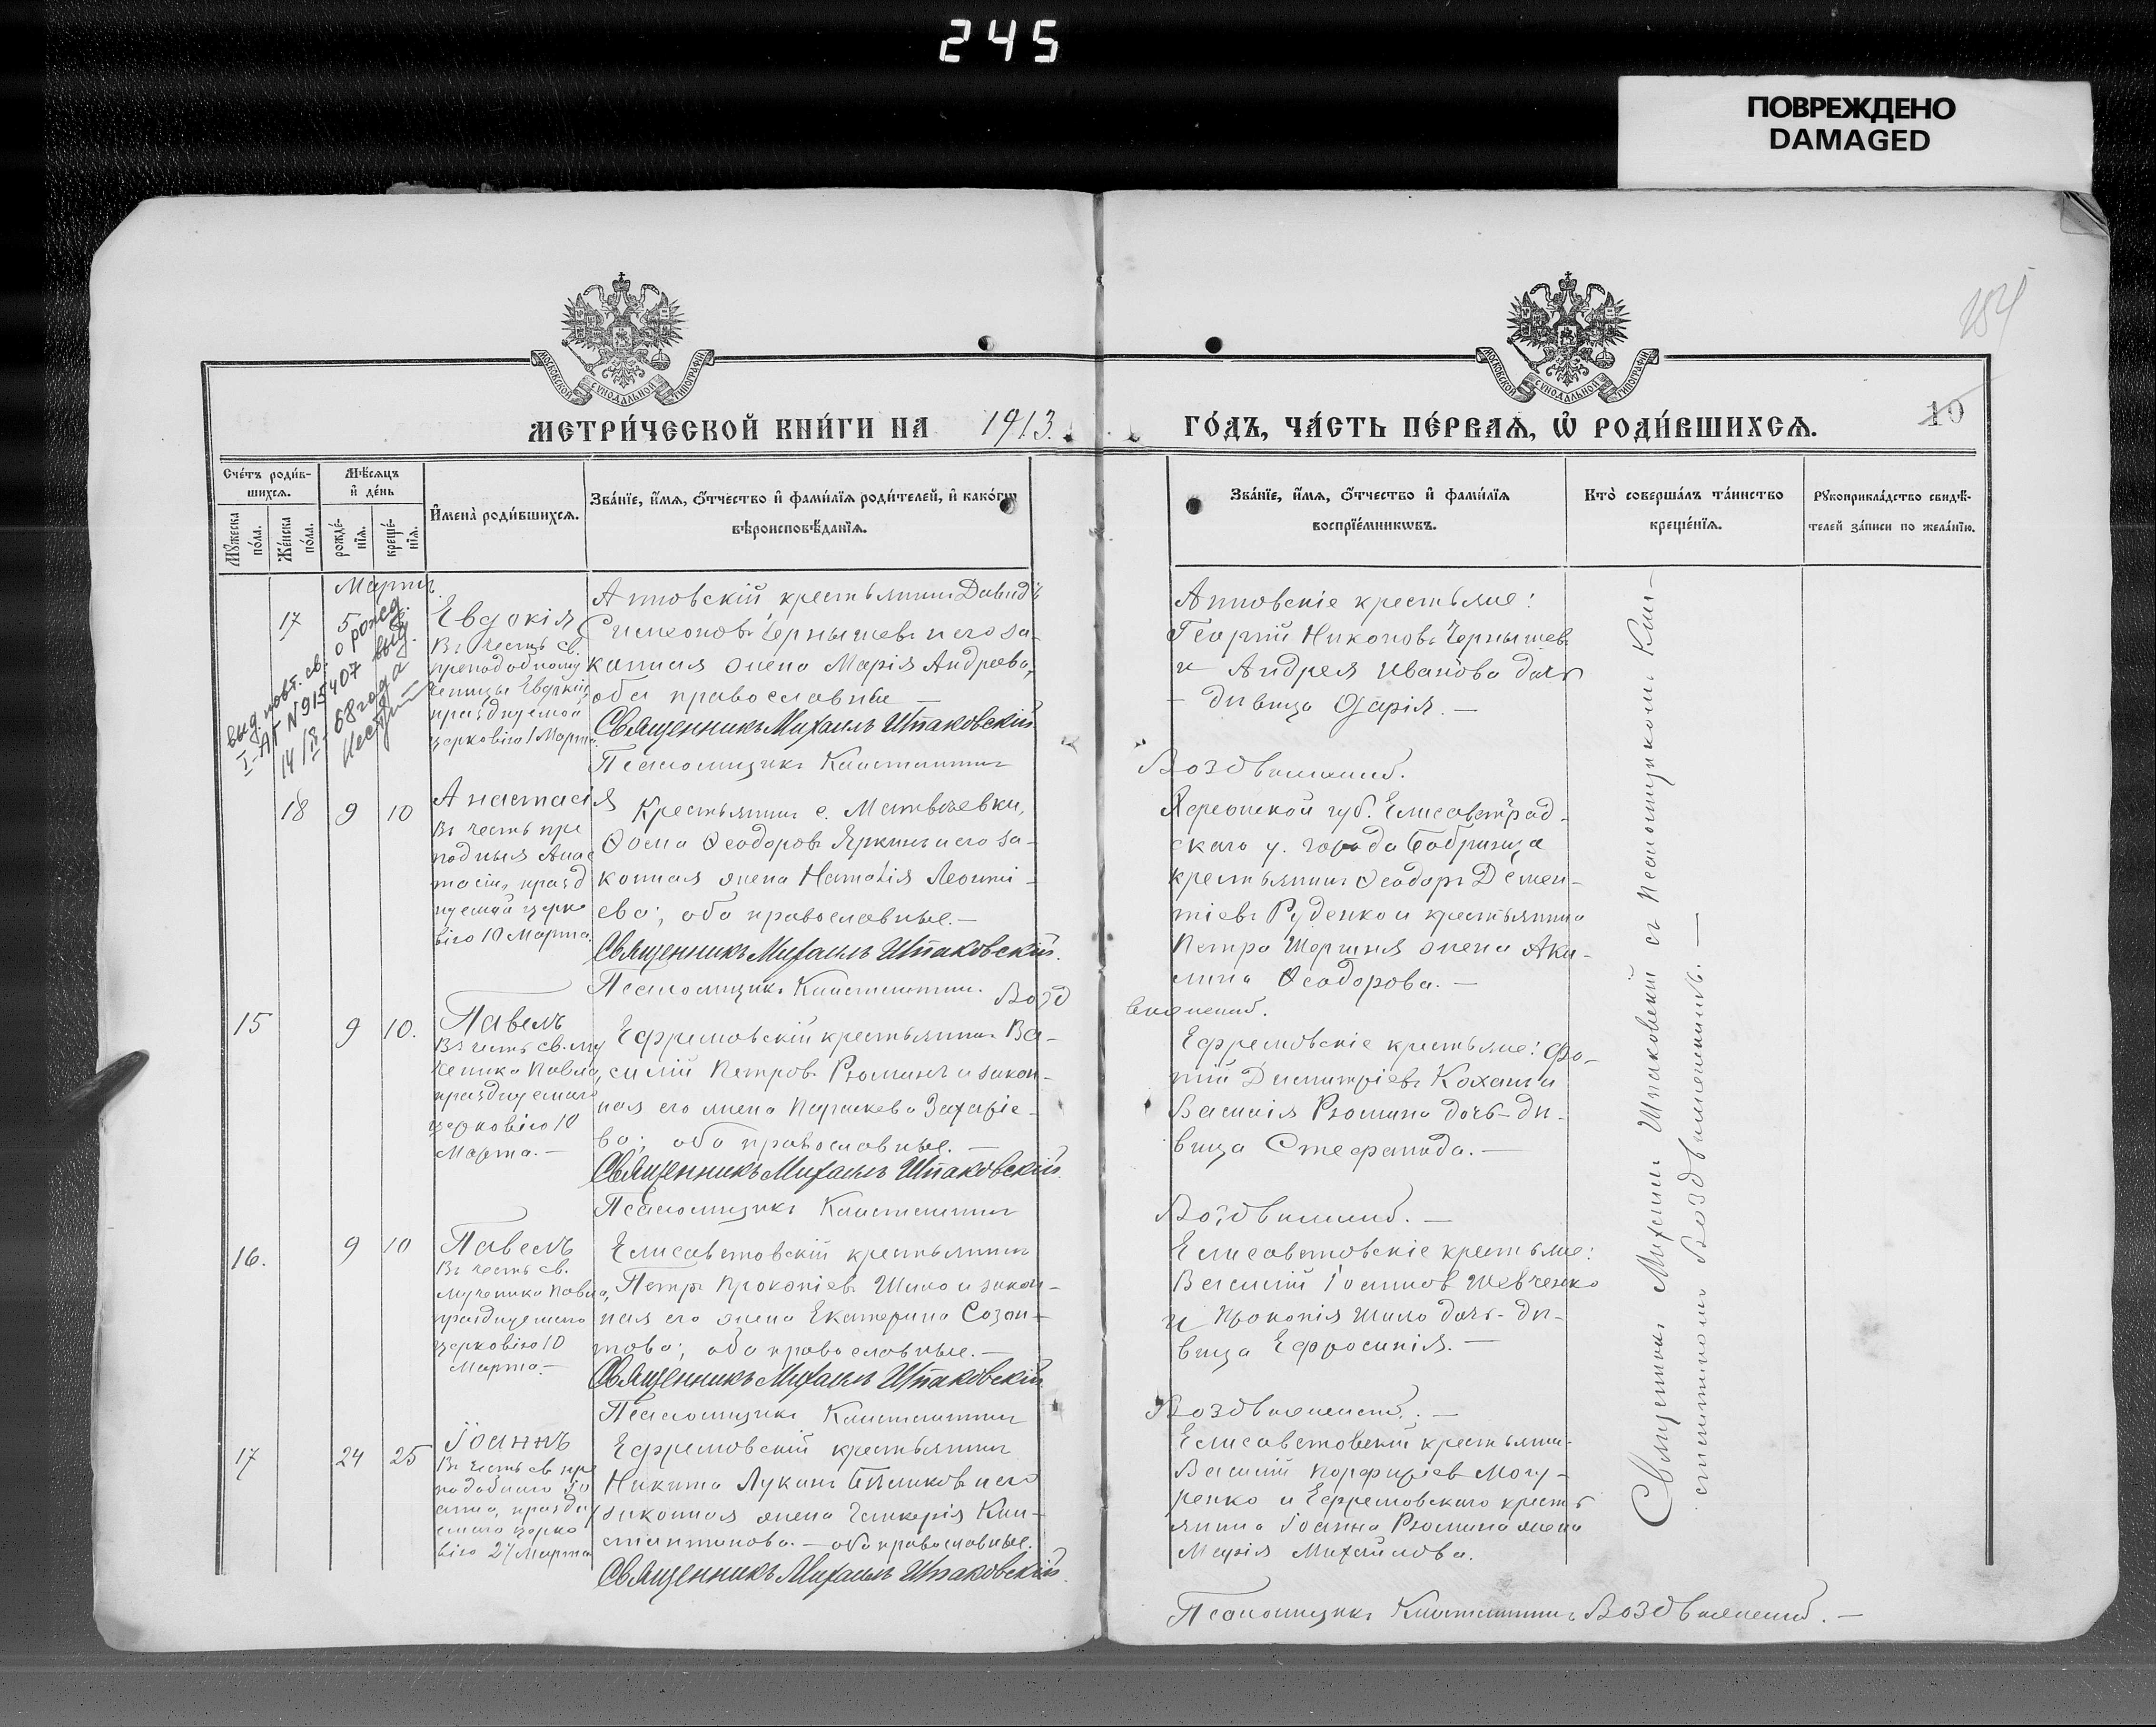 245
ПОВРЕЖДЕНО
DAMAGED
184
10
МОСКОВСКОЙ СѴНОДАЛЬНОЙ ТИПОГРАФІИ
МОСКОВСКОЙ СѴНОДАЛЬНОЙ ТИПОГРАФІИ
МЕТРИ́ЧЕСКОЙ КНИ́ГИ НА 1913.
ГО́ДЪ, ЧА́СТЬ ПЕ́РВАѦ, Ѡ҆ РОДИ́ВШИХСѦ.
Сче́тъ роди́в-
шихсѧ.
Мꙋ́жеска по́ла.
Же́нска по́ла.
Мѣ́сѧцъ
и҆ де́нь
рожде́-
нїѧ.
креще́-
нїѧ.
И҆мена̀ роди́вшихсѧ.
Зва́нїе, и҆́мѧ, ѻ҆́тчество и҆ фами́лїѧ роди́телей, и҆ како́гѡ
вѣроисповѣ́данїѧ.
Зва́нїе, и҆́мѧ, ѻ҆́тчество и҆ фами́лїѧ
воспрїе́мникѡвъ.
Кто̀ соверша́лъ та́инство
креще́нїѧ.
Рꙋкоприкла́дство свидѣ́-
телей за́писи по жела́нїю.
Мартъ.
17 5 8.
Евдокія
Въ честь св.
преподобному
ченицы Евдокіи,
празднуемой
церковію 1 Марта.
выд. повт. св. о рожд.
I-АГ N 915407 выд.
14/II-68 года
Анновскій крестьянинъ Давидъ
Симеоновъ Чернышевъ и его за-
конная жена Марія Андреева,
оба православные —
Священникъ Михаилъ Шпаковскій
Псаломщикъ Константинъ
Анновскіе крестьяне:
Георгій Никоновъ Чернышевъ
и Андрея Иванова дочь
- дѣвица Дарія. —
Воздвиженскій.
18 9 10
Анастасія
Въ честь пре
подныя Анас
тасіи, празд
нуемой церко
вію 10 Марта.
Крестьянинъ с. Матвѣевки,
Ѳома Ѳеодоровъ Яркинъ и его за-
конная жена Наталія Леонті-
ева; оба православные. —
Священникъ Михаилъ Шпаковскій.
Псаломщикъ Константинъ Возд
виженскій.
Херсонской губ. Елисаветград-
скаго у. города Бобринца
крестьянинъ Ѳеодоръ Демен-
тіевъ Руденко и крестьянина
Петра жена Аки-
лина Ѳеодорова. —
15 9 10.
Павелъ
Въ честь св. му
ченика Павла,
празднуемаго
церковію 10
Марта. —
Ефремовскій крестьянинъ Ва-
силій Петровъ Рюминъ и закон-
ная его жена Параскева Захаріе-
ва; оба православные. —
Священникъ Михаилъ Шпаковскій.
Псаломщикъ Константинъ
Ефремовскіе крестьяне: Фо-
тій Димитріевъ Коханъ и
Василія Рюмина дочь - дѣ-
вица Стефанида. —
Воздвиженскій. —
16. 9 10
Павелъ
Въ честь св.
мученика Павла,
празднуемаго
церковію 10
Марта. —
Елисаветовскій крестьянинъ
Петръ Прокопіевъ Шило и закон-
ная его жена Екатерина Созон-
това; оба православные. —
Священникъ Михаилъ Шпаковскій
Псаломщикъ Константинъ
Елисаветовскіе крестьяне:
Василій Іоанновъ Шевченко
и Прокопія Шило дочь - дѣ-
вица Ефросинія. —
Воздвиженскій. —
17 24 25
Іоаннъ
Въ честь св. пре
подобнаго Іо
анна, праздну
емаго церко
вію 27 Марта
Ефремовскій крестьянинъ
Никита Лукинъ и его
законная жена Гликерія Кон-
стантинова. — оба православные.
Священникъ Михаилъ Шпаковскій.
Елисаветовскій крестьянин-
Василій Порфиріевъ Могу-
ренко и Ефремовскаго кресть
янина Іоанна Рюмина жена
Марія Михайлова.
Псаломщикъ Константинъ Воздвиженскій. —
Священникъ Михаилъ Шпаковскій съ Псаломщикомъ Кон-
стантиномъ Воздвиженскимъ. —